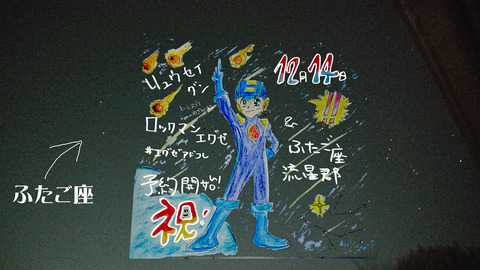 リュウセイ
グン
ロックマン
エグゼ
#エグゼアドコレ
予約開始!
祝!
12月14日
!!
&
ふたご座
流星郡
ふたご座